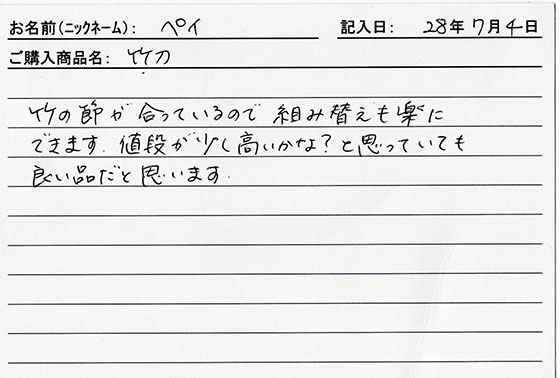 お名前(ニックネーム): ペイ 記入日: 28年7月4日
ご購入商品名: 竹刀
竹の節が合っているので組み替えも楽に
できます. 値段が少し高いかな?と思っていても
良い品だと思います.